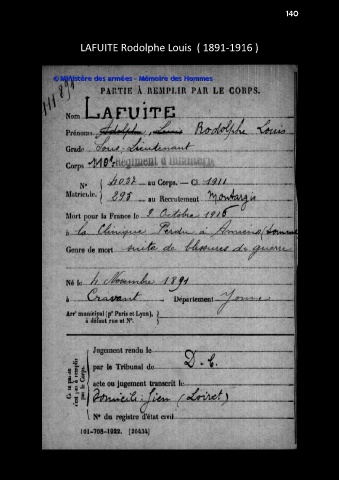 140
LAFUITE Rodolphe Louis ( 1891-1916 )
© Ministère des armées - Mémoire des Hommes
PARTIE À REMPLIR PAR LE CORPS.
Nom LAFUITE
Prénoms Adolphe, Louis Rodolphe Louis
Grade Sous-Lieutenant
Corps 113e Régiment d'Infanterie
N° 4037 au Corps. — Cl. 1911
Matricule. 293 au Recrutement Montargis
Mort pour la France le 2 Octobre 1916
à la Clinique Perdu à Amiens (Somme
Genre de mort suite de blessures de guerre
Né le 4 Novembre 1891
à Cravant Département Yonne
Arr' municipal (p' Paris et Lyon),
à défaut rue et N°.
Ce cadre n'est pas à remplir par le Corps.
Jugement rendu le
par le Tribunal de D. C.
acte ou jugement transcrit le
Domicile: Gien (Loiret)
N° du registre d'état civil
101-708-1922. [26434]